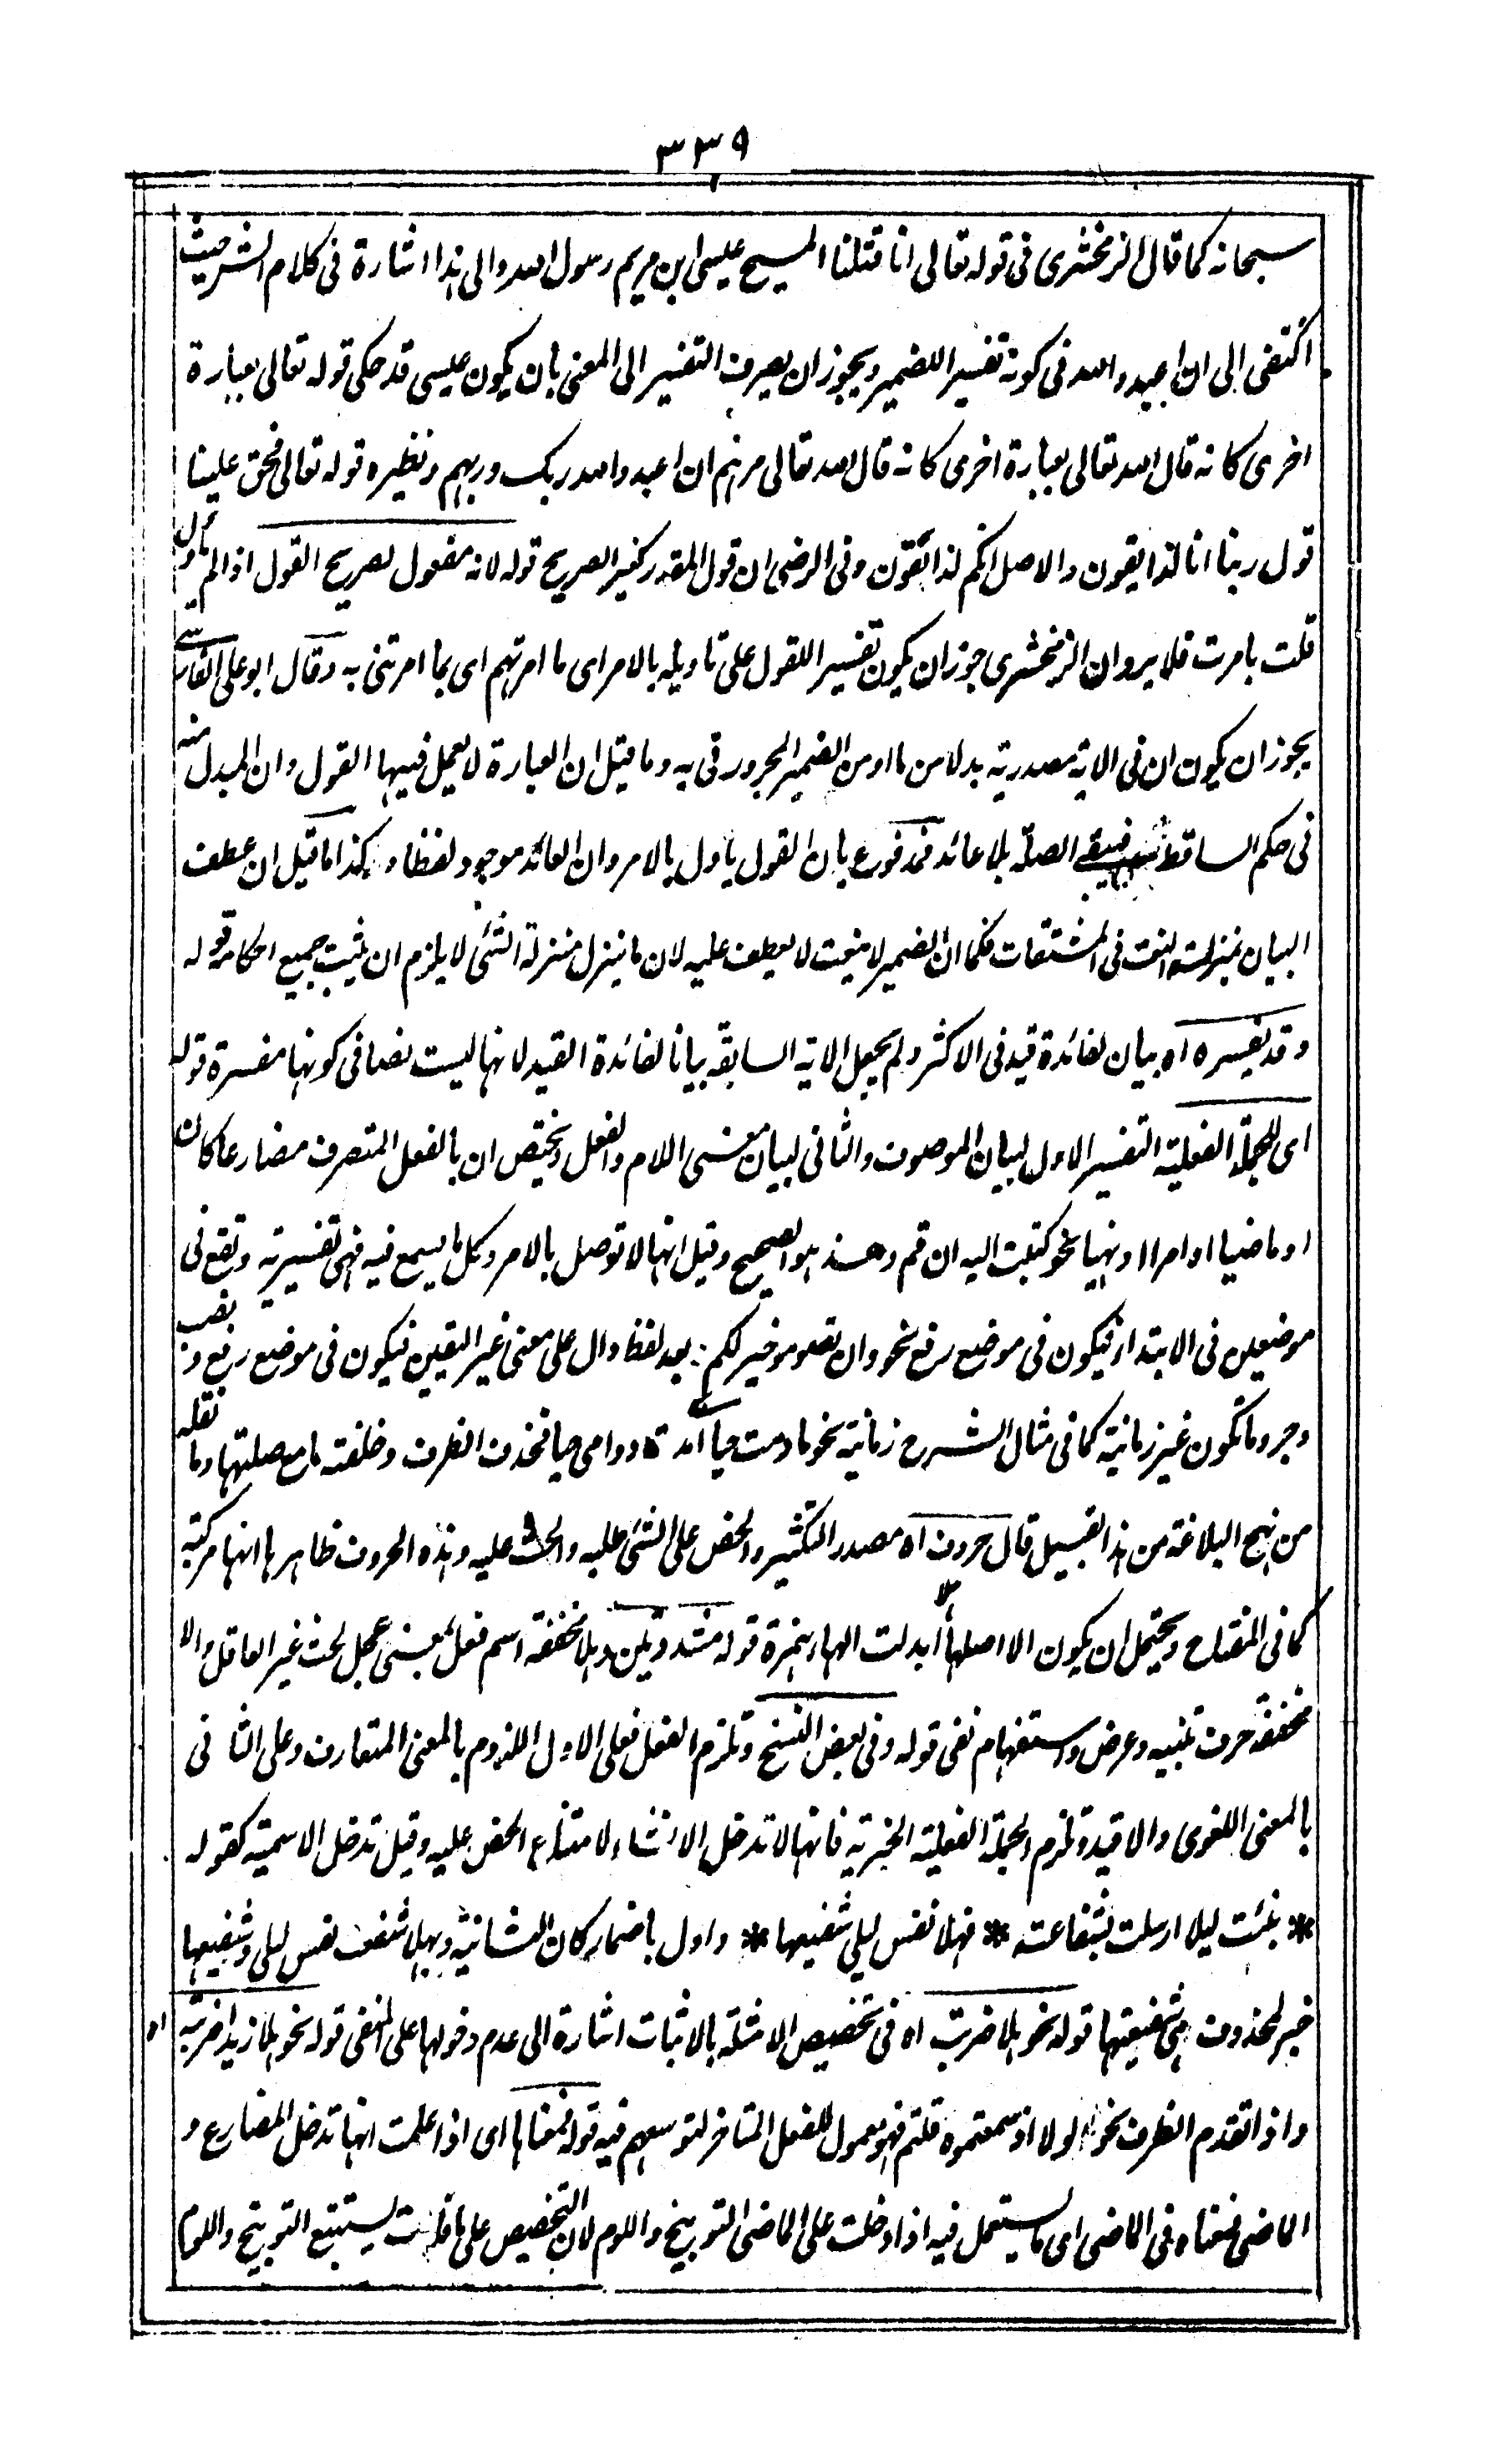 ٣٣٩
سبحانه كما قال الزمخشرى فى قوله تعالى انا قتلنا المسيح عيسى ابن مريم رسول الله والى هذا اشارة فى كلام الشرح حيث
اكتفى الى ان اعبدوا الله فى كونه تفسيرا للضمير ويجوز ان يصرف التفسير الى المعنى بان يكون عيسى قد حكى قوله تعالى بعبارة
اخرى كانه قال الله تعالى بعبارة اخرى كانه قال الله تعالى مرهم ان اعبدوا الله ربك وربهم ونظيره قوله تعالى فحق علينا
قول ربنا انا لذايقون والاصل انكم لذائقون وفى الرضى ان قول المقدر كغير الصريح قوله لانه مفعول لصريح القول اذا لم ياول
قلت بامرت فلا يرد ان الزمخشرى جوز ان يكون تفسيرا للقول على تاويله بالامر اى ما امرتهم اى بما امرتنى به وقال ابو على الفارسى
يجوز ان يكون ان فى الاية مصدرية بدلا من ما او من الضمير المجرور فى به وما قيل ان العبارة لا يعمل فيها القول وان المبدل منه
فى حكم الساقط فيبقى الصلة بلا عائد فمدفوع بان القول ياول بالامر وان العائد موجود لفظا وكذا ما قيل ان عطف
البيان بمنزلة النعت فى المشتقات فكما ان الضمير لا ينعت لا يعطف عليه لان ما ينزل منزلة الشئ لا يلزم ان يثبت جميع احكامه قوله
وقد تفسره اه بيان لفائدة قيد فى الاكثر ولم يجعل الاية السابقة بيانا لفائدة القيد لانها ليست نصا فى كونها مفسرة قوله
اى للجملة الفعلية التفسير الاول لبيان الموصوف والثانى لبيان معنى اللام والفعل ويختص ان بالفعل المتصرف مضارعا كان
او ماضيا او امرا او نهيا نحو كتبت اليه ان قم وهذا هو الصحيح وقيل انها لا توصل بالامر وكل ما يسمع فيه فهى تفسيرية وتقع فى
موضعين فى الابتداء فيكون فى موضع رفع نحو وان تصوموا خير لكم : بعد لفظ دال على معنى غير اليقين فيكون فى موضع رفع ونصب
وجر وما تكون غير زمانية كما فى مثال الشرح زمانية نحو ما دمت حيا اى مدة دوامى حيا فحذف الظرف وخلفته ما مع صلتها وما نقله
من نهج البلاغة من هذا القبيل قال حروف اه مصدر التكثير والحض على الشئ طلبه والحث عليه وهذه الحروف ظاهرها انها مركبة
كما فى المفتاح ويحتمل ان يكون الا اصلها هلا ابدلت الهاء بهمزة قوله مشددتين وهلا مخففة اسم فعل بمعنى عجل لحث غير العاقل والا
مخففة حرف تنبيه وعرض واستفهام نفى قوله وفى بعض النسخ وتلزم الفعل فعلى الاول اللزوم بالمعنى المتعارف وعلى الثانى
بالمعنى اللغوى والا قيد وتلزم الجملة الفعلية الخبرية فانها لا تدخل الانشاء لامتناع الحض عليه وقيل تدخل الاسمية كقوله
* نبئت ليلا ارسلت بشفاعته * فهلا نفس ليلى شفيعها * واول باضمار كان الشانية وبهلا شفعت نفس ليلى وشفيعها
خبر لمحذوف هى شفيعتها قوله نحو هلا ضربت اه فى تخصيص الامثلة بالاثبات اشارة الى عدم دخولها على النفى قوله نحو هلا زيدا ضربته اه
واذا تقدم الظرف نحو لولا اذ سمعتموه قلتم فهو معمول للفعل المتاخر لتوسعهم فيه قوله فمعناها اى اذا علمت انها تدخل المضارع و
الماضى فمعناه فى الماضى اى ما يستعمل فيه اذا دخلت على الماضى التوبيخ واللوم لان التخصيص على ما فات يستتبع التوبيخ واللوم